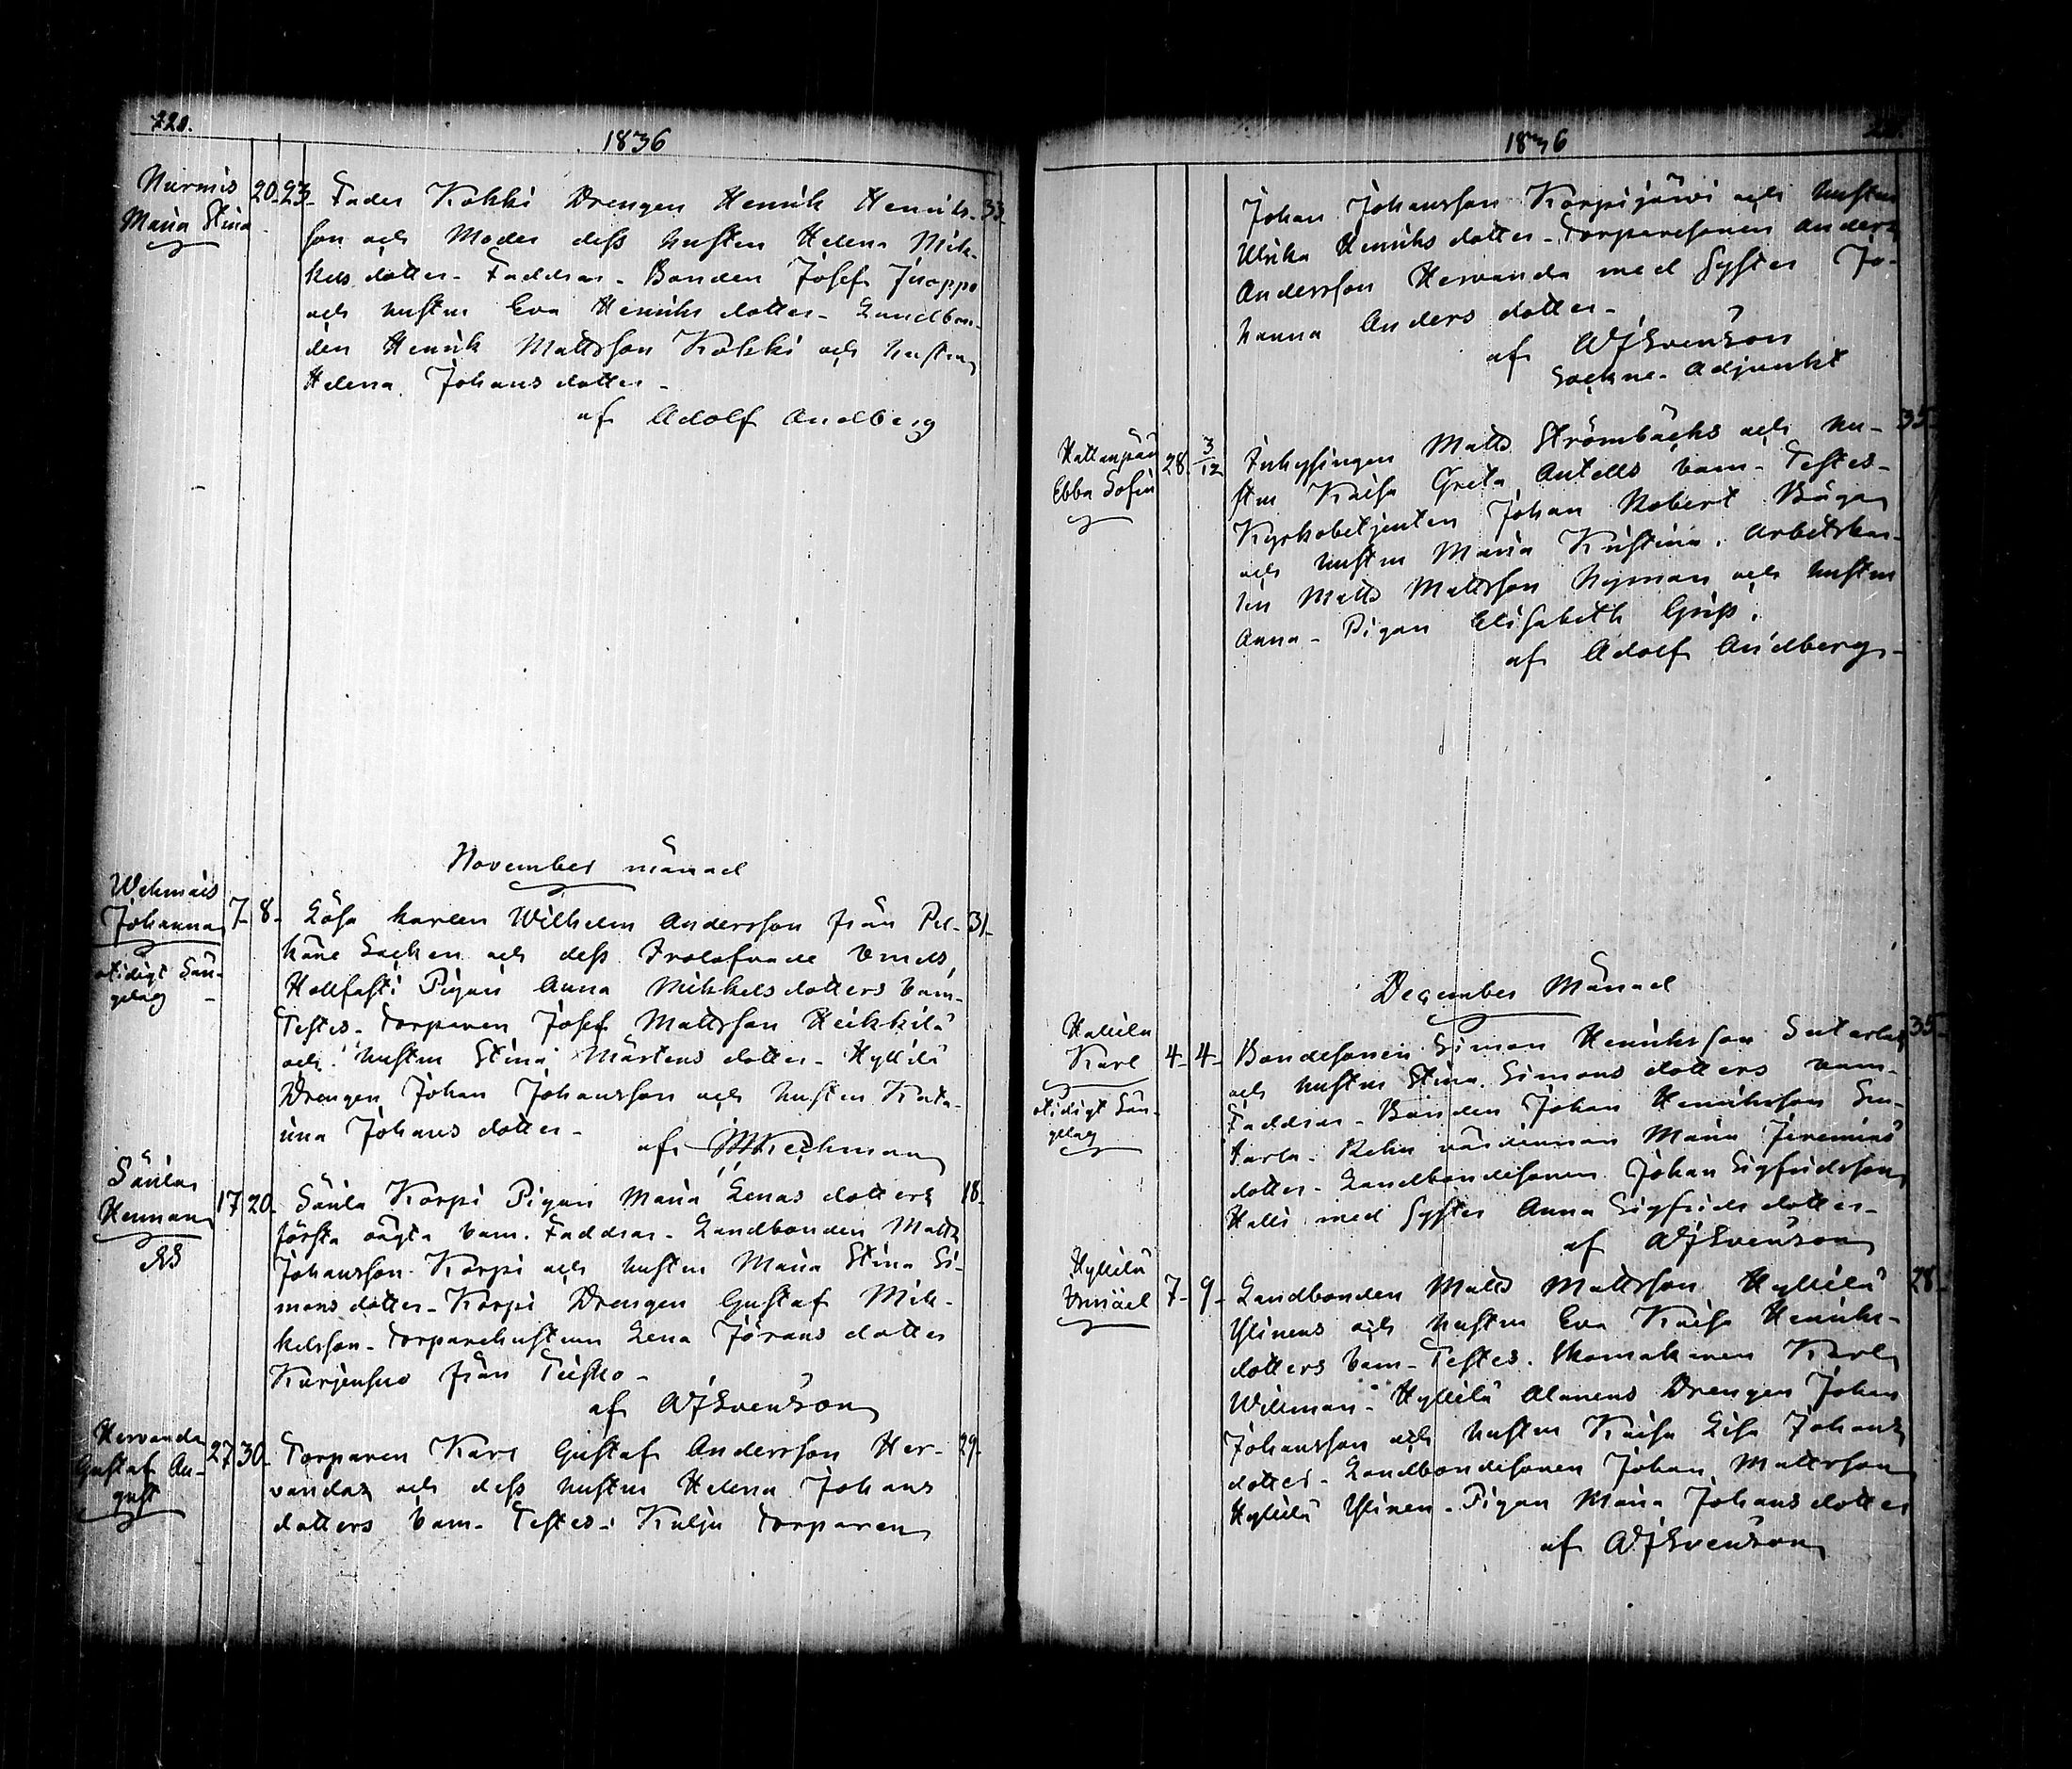 220.
1836
Nurmis
Maria Stina
20. 23.
Fader Kokki Drengen Henrik Henriks-
33.
son och Moder dess hustru Helena Mik-
kels dotter. Faddrar. Bonden Josef Juoppo
och hustru Eva Henriks dotter. Landbon-
den Henrik Mattsson Kokki och hustru
Helena Johans dotter.
af Adolf Andberg
November månad
Wehmais
Johanna
otidigt Sän-
gelag
7. 8.
Lösa karlen Wilhelm Andersson från Pel-
31.
käne Sochen och dess Trolofvade
Pigan Anna Mikkels dotters barn.
Testes. Torparen Josef Mattsson Heikkilä
och hustru Stina Mårtens dotter. Hyllilä
Drengen Johan Johansson och hustru Kata-
rina Johans dotter.
af
Säulas
Herman
17 20.
Säula Korpi Pigan Maria Lenas dotters
18.
första oägta barn. Faddrar. Landbonden Matts
Johansson Korpi och hustru Maria Stina Si-
mons dotter. Korpi Drengen Gustaf Mik-
kelsson. Torparehustrun Lena Jörans dotter
från Teisko.
af WJ Svenson
Hervanda
Gustaf Au-
gust
27 30.
Torparen Karl Gustaf Andersson Her-
29.
vandas och dess hustru Helena Johans
dotters barn. Testes. Kulju Torparen
1836
Johan Johansson Korpijärvi och hustru
Ulrika Henriks dotter. Torparesonen Anders
Andersson Hervanda med Syster Jo-
hanna Anders dotter.
af WJ Svenson
Sockne. Adjunkt
Hattanpää
Ebba Sofia
28. 3/12
Inhysingen Matts Strömbäcks och hu-
35.
stru Kaisa Greta Antells barn. Testes.
Kyrkobetjenten Johan Robert
och hustru Maria Kristina. Arbetskar-
len Matts Mattsson Nyman och hustru
Anna. Pigan Elisabeth
af Adolf Andberg.
December Månad
Karl
otidigt Sän-
gelag
4. 4.
Bondesonen Simon Henriksson
35.
och hustru Stina Simons dotters barn.
Faddrar. Bonden Johan Henriksson
värdinnan Maria Jeremias
dotter. Landbondesonen Johan Sigfridsson
Halli med Syster Anna Sigfrids dotter.
af WJ Svenson
Hyllilä
7. 9.
Landbonden Matts Mattsson Hyllilä
28.
Ylinens och hustru Eva Kaisa Henriks-
dotters barn. Testes. Skomakaren Karl
Willman. Hyllilä Alanens Drengen Johan
Johansson och hustru Kaisa Lisa Johans
dotter. Landbondesonen Johan Mattsson
Hyllilä Ylinen. Pigan Maria Johans dotter
af WJ Svenson